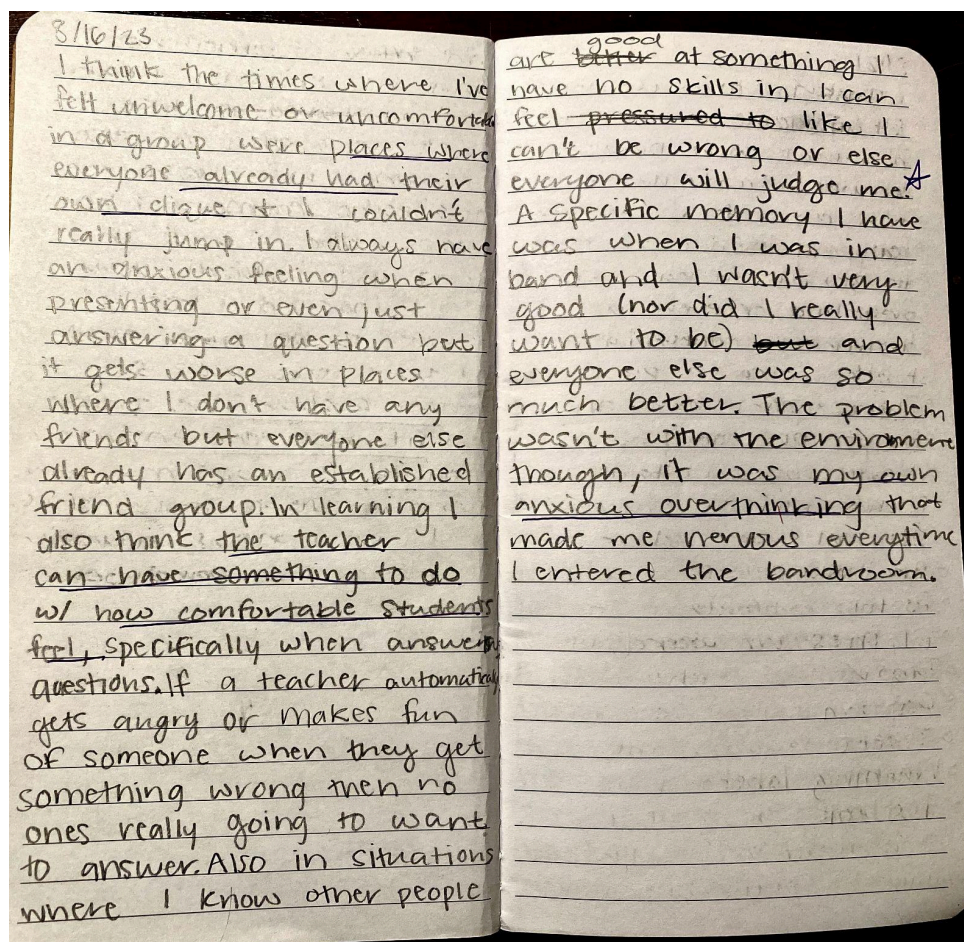 8/16/23
I think the times where I've
felt unwelcome or uncomfortable
in a group were places where
everyone already had their
own clique & I couldn't
really jump in. I always have
an anxious feeling when
presenting or even just
answering a question but
it gets worse in places
where I don't have any
friends but everyone else
already has an established
friend group. In learning I
also think the teacher
can have something to do
w/ how comfortable students
feel, specifically when answering
questions. If a teacher automatically
gets angry or makes fun
of someone when they get
something wrong then no
ones really going to want
to answer. Also in situations
where I know other people
good
are better at something I
have no skills in I can
feel pressured to like I
can't be wrong or else
everyone will judge me.
A specific memory I have
was when I was in
band and I wasn't very
good (nor did I really
want to be) but and
everyone else was so
much better. The problem
wasn't with the environment
though, it was my own
anxious overthinking that
made me nervous everytime
I entered the bandroom.